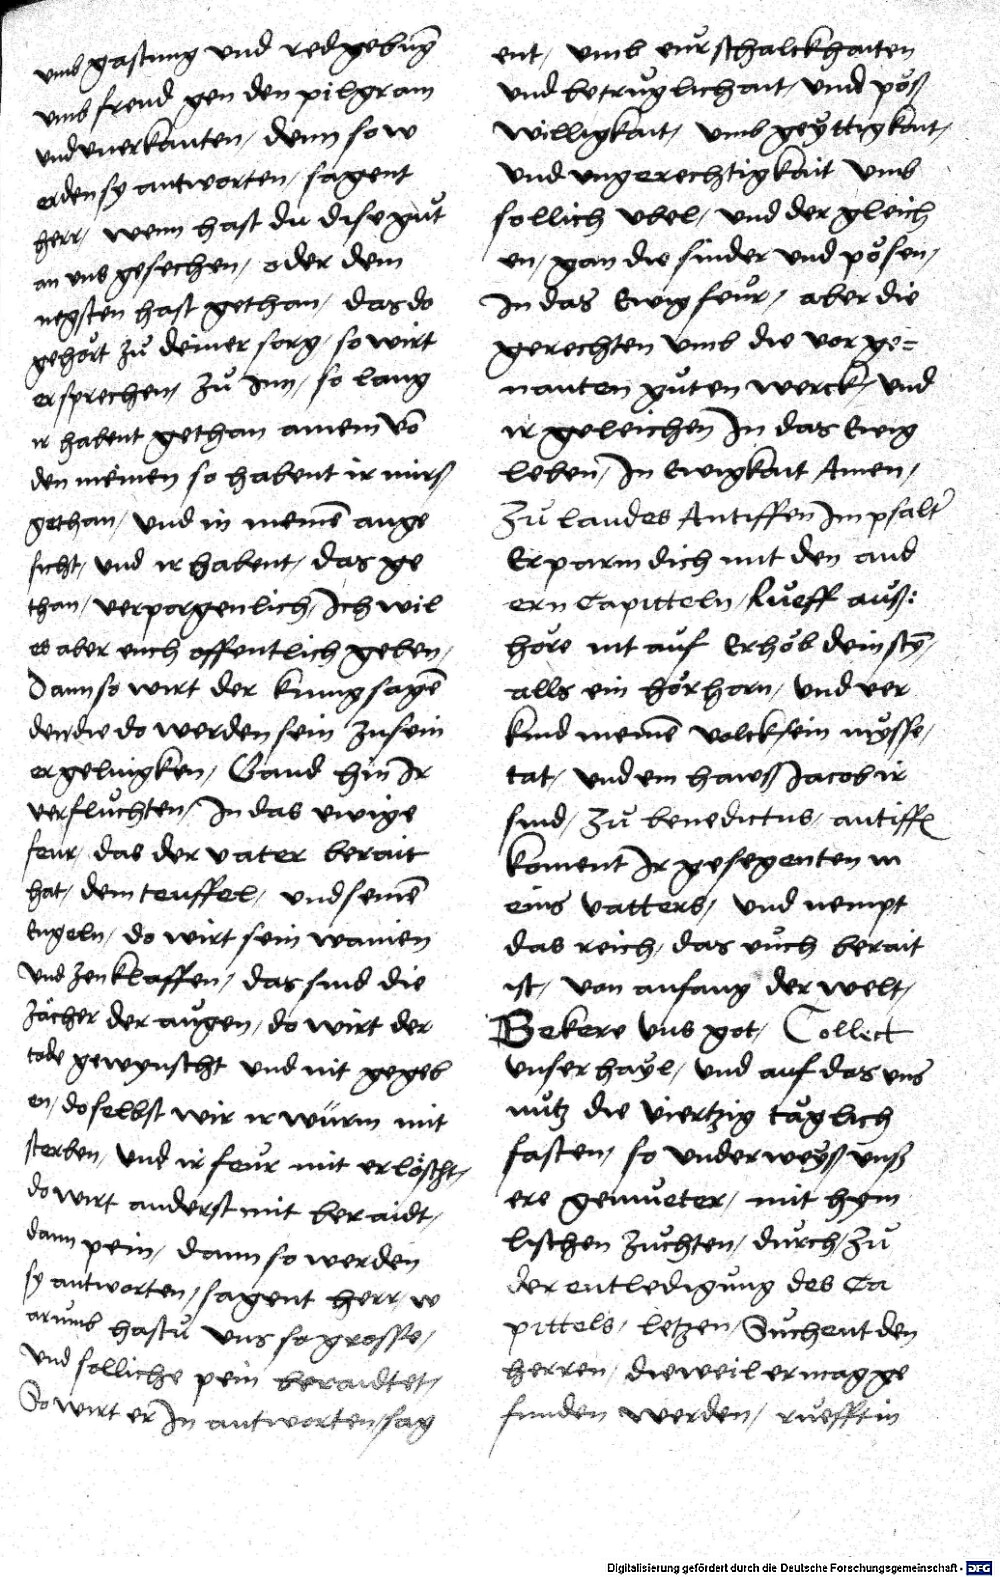 vmb gastung vnd redgebūg
vmb freud gen den pilgram
vnd vnerkanten / denn so w
erden sy antworten / sagent
herr / wenn hast du dise gůt
an vns gesechen / oder dem
negsten hast gethan / das do
gehört zů deiner sorg / so wirt
er sprechen / zů Inn / so lang
ir habent gethan ainem vō
den meinen so habent ir mirs
gethan / vnd in meinē ange
sicht / vnd ir habent / das ge
than / verporgenlich / Ich wil
es aber euch offentlich geben /
Dann so wirt der kunig sagē
den die do werden sein zu sein
er gelingken / Gand hin Ir
verflůchten / In das ewige
feur / das der vater berait
hat / dem teuffel / vnd seinē
Engeln / do wirt sein wainen
vnd zenklaffen / das sind die
zächer der augen / do wirt der
tode gewynscht vnd nit gegeb
en / do selbst wir ir würm nit
sterben / vnd ir feur nit erlöscht /
do wirt anderst nit beraidt /
dann pein / dann so werden
sy antworten / sagent herr / w
arumb hastu vns so grosse /
vnd solliche pein beraidtet /
So wirt er In antworten / sag
ent / vmb eur schalckhaiten
vnd betruglichait / vnd pöß
willigkait / vmb geyttigkait /
vnd vngerechtigkait vmb
sollich vbel / vnd der gleich
en / gan die sinder vnd pösen /
In das Ewig feur / aber die
gerechten vmb die vor ge=
nanten gůten werck / vnd
ir geleichen In das Ewig
leben / In Ewigkait Amen /
Zů laudes Antiffen Im psalt̕
Erparm dich mit den and
ern Capitteln / Rueff auß:
höre nit auf Erhöb dein stȳ /
alls ein hörhorn / vnd ver
kind meinē volck sein mysse /
tat / vnd em hawß Jacob ir
sind / Zů benedictus / antiffn
koment Ir gesegenten m
eins vatters / vnd nempt
das reich / das euch berait
ist / von anfang der welt /
Bekere vns got / Collect
vnser hayl / vnd auf das vns
nutz die viertzig täglich
fasten / so vnderweyß vnß
ere gemueter / mit hym
lischen zuchten / durch / Zů
der entledigung des Ca
pittels / letzen / Suchent den
herren / dieweil er mag ge
funden werden / ruefft in
Digitalisierung gefördert durch die Deutsche Forschungsgemeinschaft - DFG